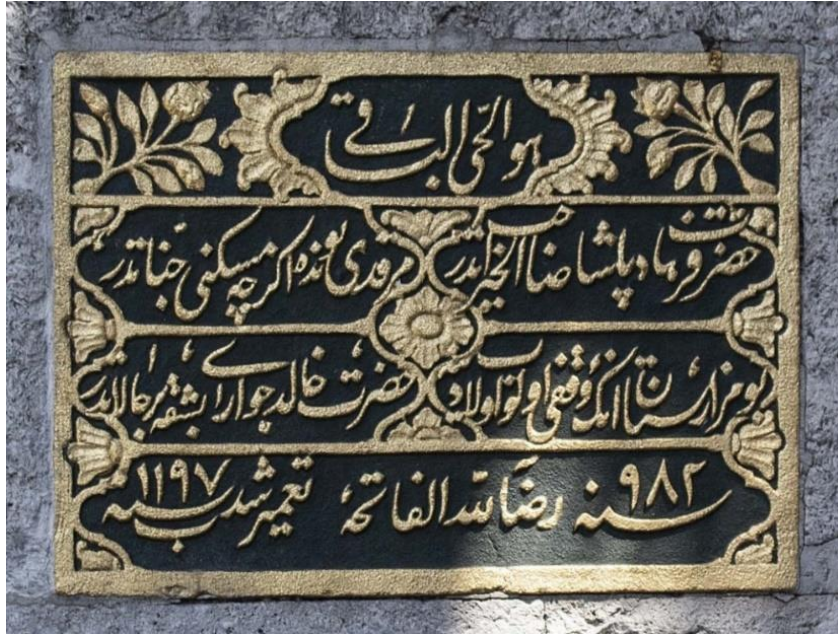 هو الحی الباقی
حضرت فرهاد پاشا صاحب الخیراتدر مرقدی بونده اکرچه مسکنی جناتدر
بو مزارستان انک وقفی اولوب اولاد حضرت خالد جواری بشقه بر حالاتدر
سنه ٩٨٢ رضاء لله الفاتحه تعمیر شد سنه ١١٩٧